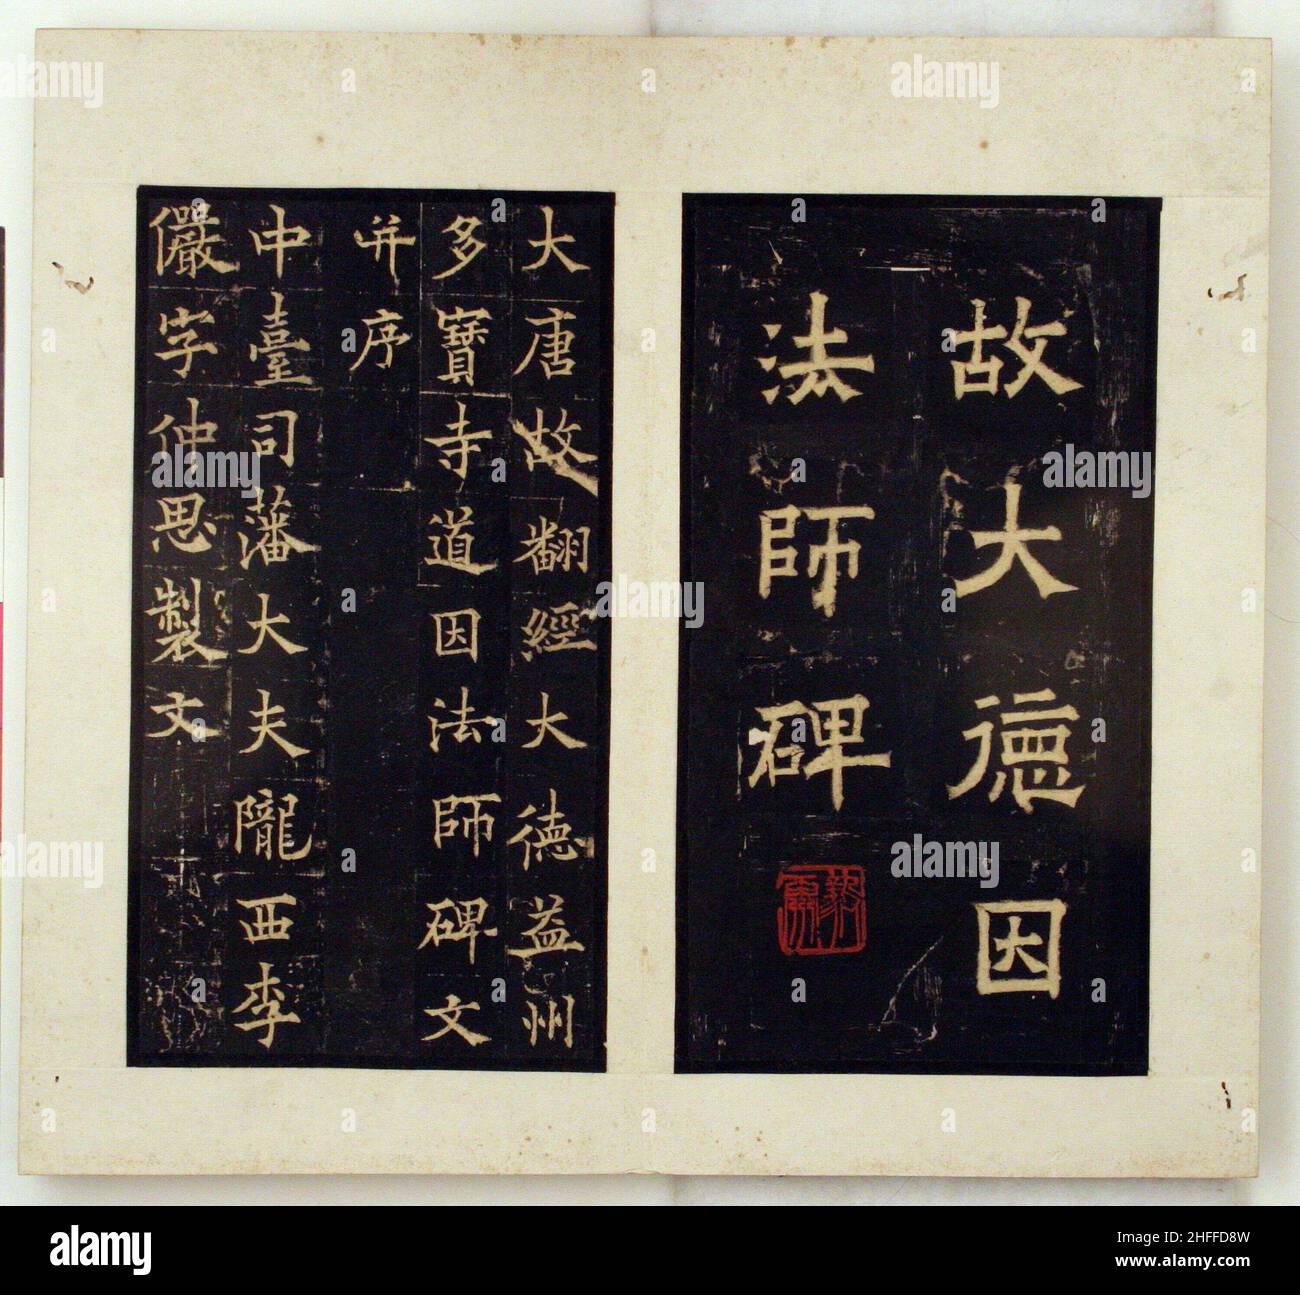 故大德因
法師碑
大唐故翻經大德益州
多寶寺道因法師碑文
并序
中臺司藩大夫隴西李
儼字仲思製文
alamy
Image ID: 2HFFD8W
www.alamy.com